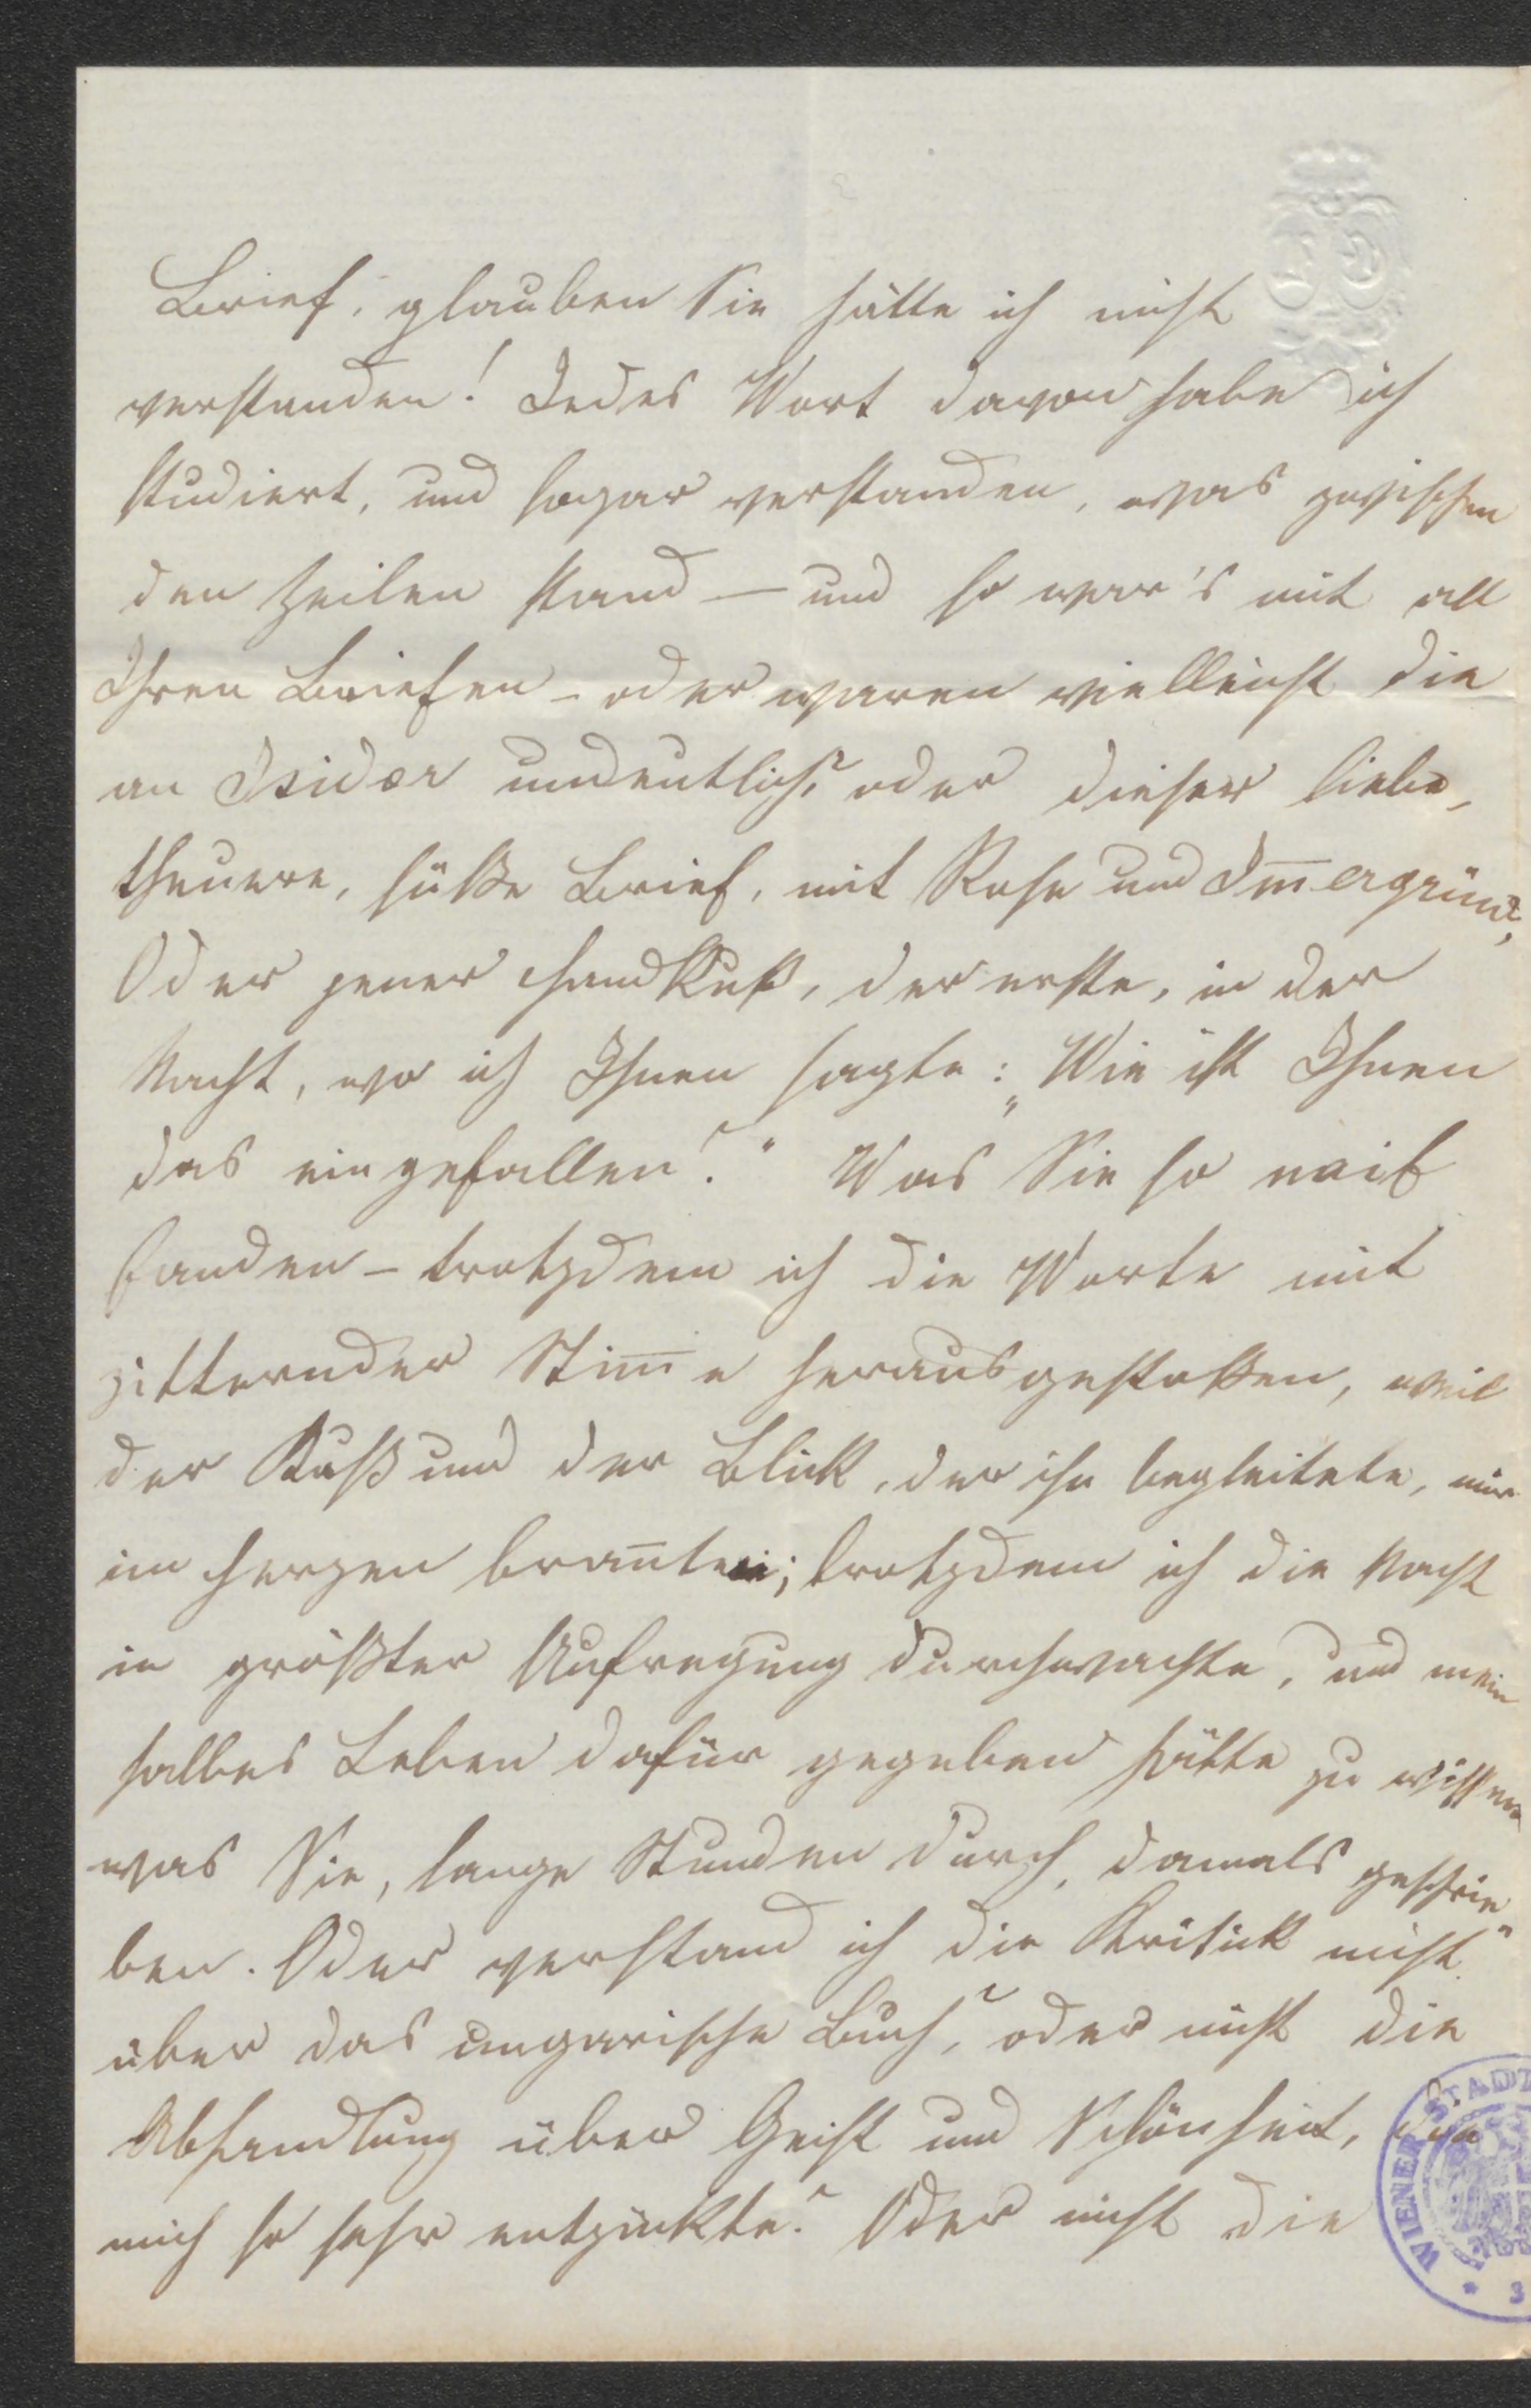 Brief, glauben Sie hätte ich nicht
verstanden! Jedes Wort davon habe ich
studiert, und sogar verstanden, was zwischen
den Zeilen stand – und so war's mit all
Ihren Briefen – oder waren vielleicht die
an Isidor undeutlich? oder dieser liebe,
theuere, süße Brief, mit Rose und Im̄ergrün?
Oder jener Handkuß, der erste, in der
Nacht, wo ich Ihnen sagte: „Wie ist Ihnen
das eingefallen?“ Was Sie so naif
fanden – trotzdem ich die Worte mit
zitternder Stim̄e herausgestoßen, weil
der Kuß und der Blick, der ihn begleitete, mir
im Herzen bran̄ten; trotzdem ich die Nacht
in größter Aufregung durchwachte, und mein
halbes Leben dafür gegeben hätte zu wissen
was Sie, lange Stunden durch, damals geschrie
ben. Oder verstand ich die Kritick nicht
über das ungarische Buch? oder nicht die
Abhandlung über Geist und Schönheit, die
mich so sehr entzückte? Oder nicht die
WIENER STADT
* 3